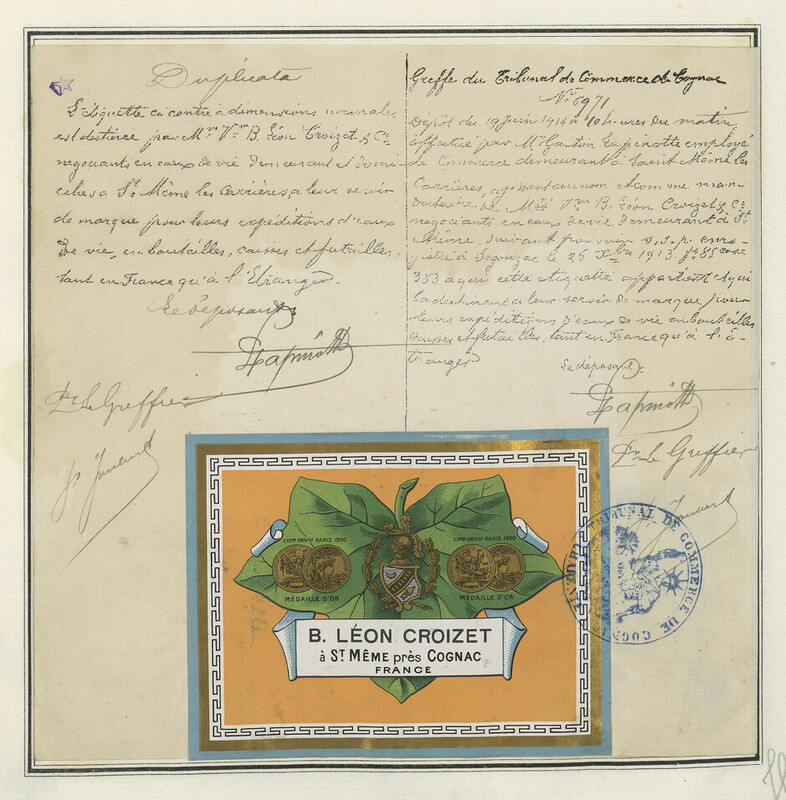 Duplicata
L'étiquette ci contre à dimensions normales
est destinée par Mme Vve B. Léon Croizet & Cie
négociants en eaux de vie demeurant et domi
ciliés à St Même les Carrières, à leur servir
de marque pour leurs expéditions d'eaux
de vie, en bouteilles, caisses et futailles,
tant en France qu'à l'Etranger.
Le déposant
Pr Le Greffier
Greffe du Tribunal de Commerce de Cognac
No 6971
Dépôt du 19 Juin 1914 à 10 heures du matin
effectué par Mr Gaston employé
de Commerce demeurant à Saint Même les
Carrières, agissant au nom et comme man-
dataire de Vve B. Léon Croizet & Cie
négociants en eaux de vie, demeurant à St
Même, suivant pouvoir s.s.p. enre-
gistré à Segonzac le 26 Xbre 1913, fo 85 case
383 à qui cette étiquette appartient et qui
la destinent à leur servir de marque pour
leurs expéditions d'eaux de vie en bouteilles
caisses et futailles, tant en France qu'à l'é-
tranger
Le déposant
Pr Le Greffier
EXPN UNIVLE PARIS 1900
MÉDAILLE D'OR
EXPN UNIVLE PARIS 1900
MÉDAILLE D'OR
B. LÉON CROIZET
à ST MÊME près COGNAC
FRANCE
TRIBUNAL DE COMMERCE DE COGNAC